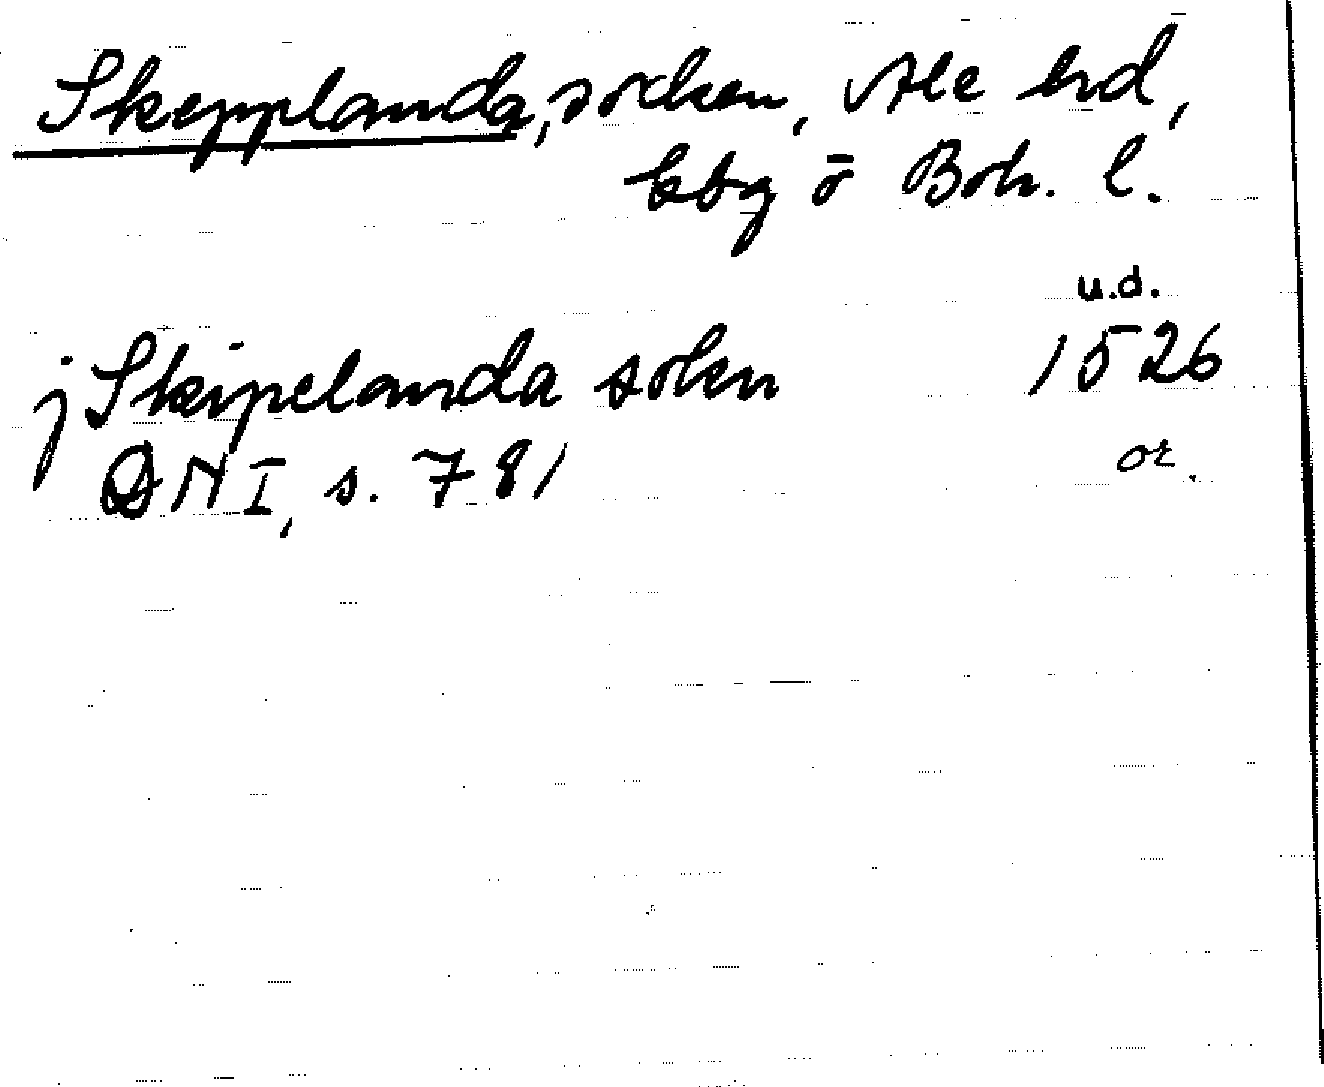 Skepplanda, socken, Ale hrd,
Gbg o Boh. l.
u.d.
j Skipelanda sokn 1526
DN I, s. 781 or.